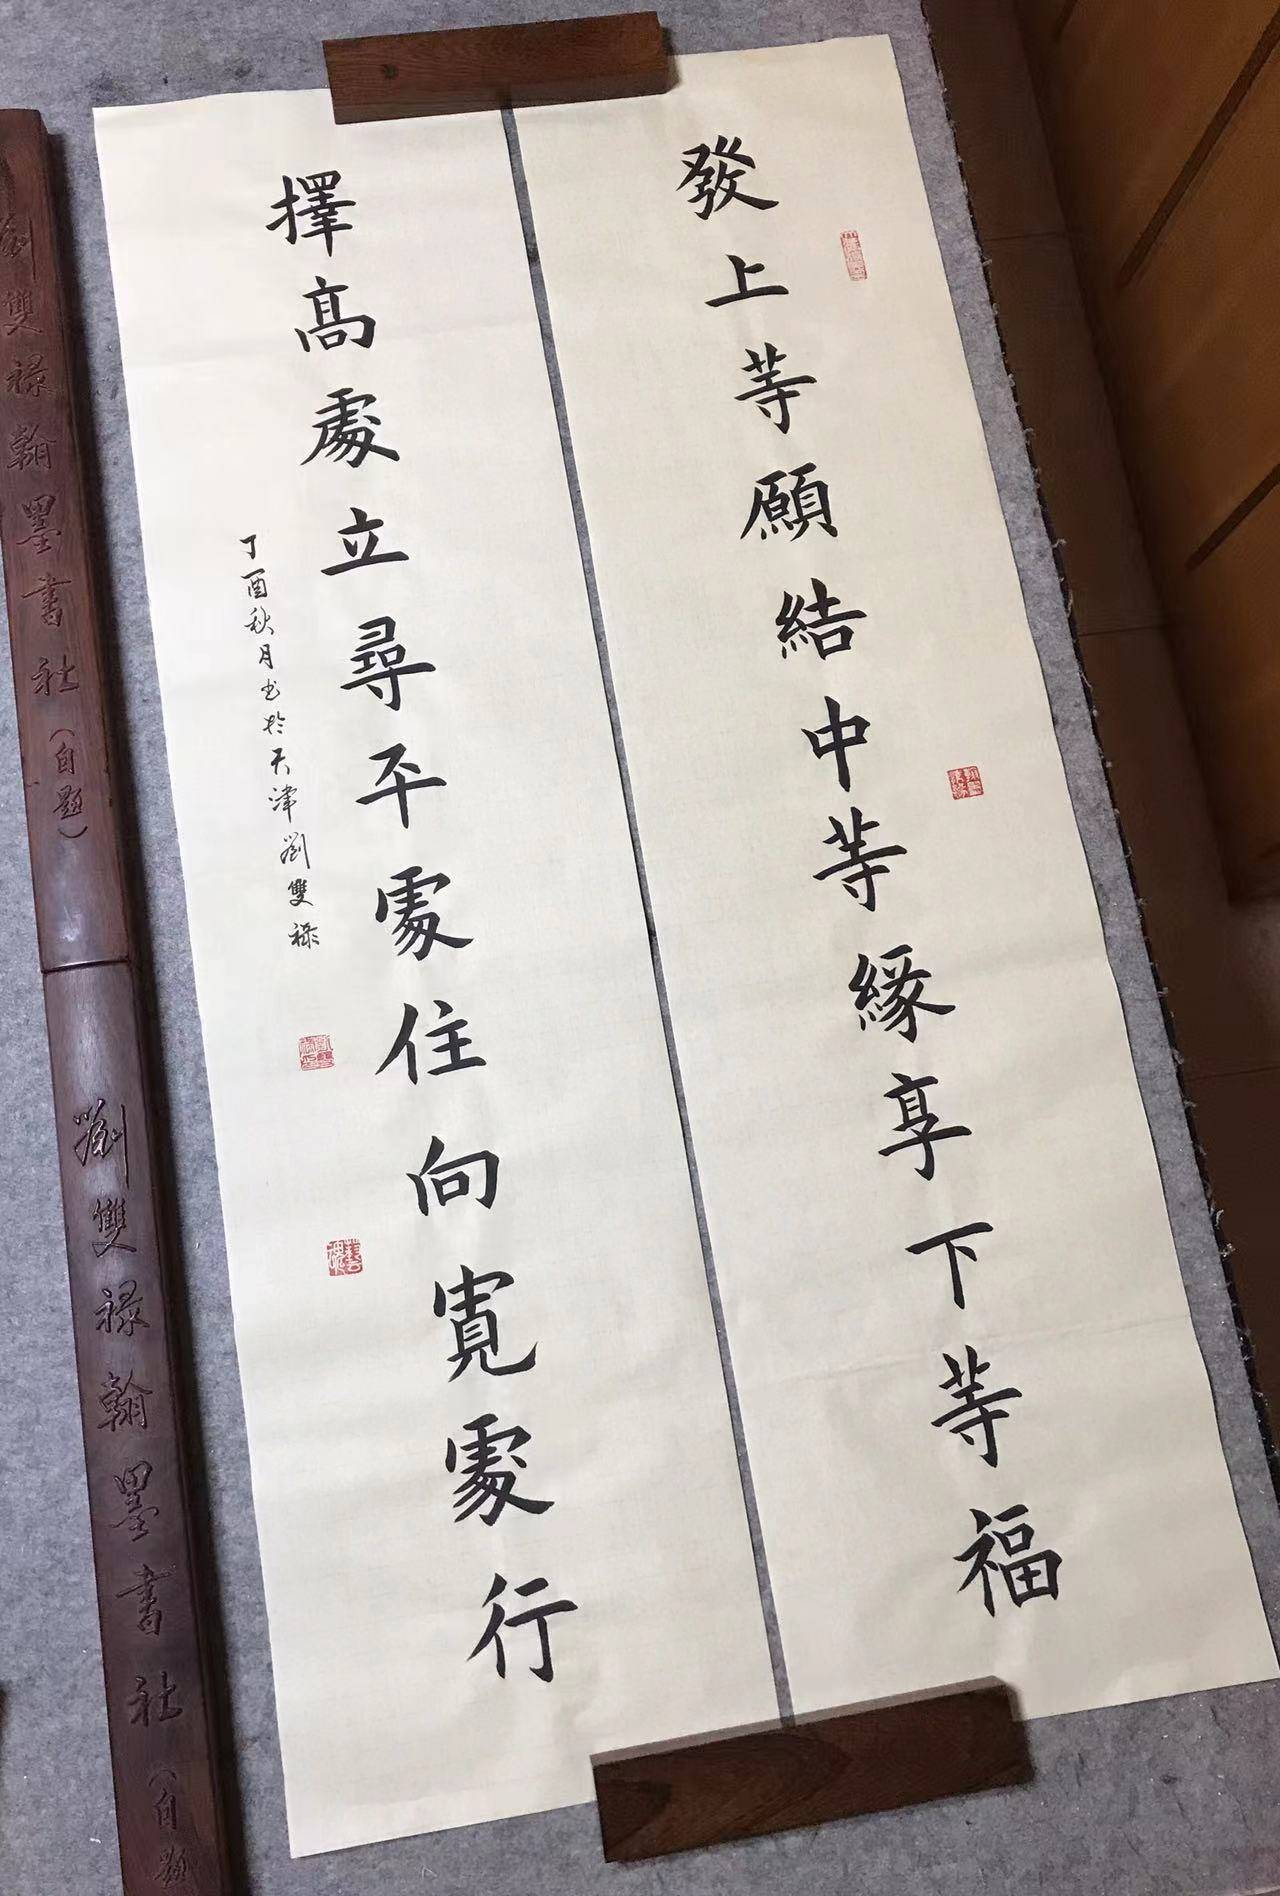 發上等願結中等緣享下等福
擇高處立尋平處住向寬處行
丁酉秋月书於天津劉雙禄
劉雙禄翰墨書社（自題）
劉雙禄翰墨書社（自題